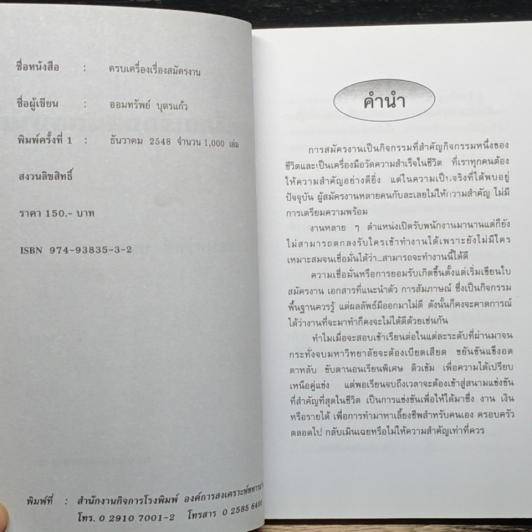 ชื่อหนังสือ : ครบเครื่องเรื่องสมัครงาน
ชื่อผู้เขียน : ออมทรัพย์ บุตรแก้ว
พิมพ์ครั้งที่ 1 : ธันวาคม 2548 จำนวน 1,000 เล่ม
สงวนลิขสิทธิ์
ราคา 150.- บาท
ISBN 974-93835-3-2
พิมพ์ที่ : สำนักงานกิจการโรงพิมพ์ องค์การสงเคราะห์ทหาร
โทร. 0 2910 7001-2 โทรสาร 0 2585
คำนำ
การสมัครงานเป็นกิจกรรมที่สำคัญกิจกรรมหนึ่งของ
ชีวิตและเป็นเครื่องมือวัดความสำเร็จในชีวิต ที่เราทุกคนต้อง
ให้ความสำคัญอย่างดียิ่ง แต่ในความเป็นจริงที่ได้พบอยู่
ปัจจุบัน ผู้สมัครงานหลายคนกับละเลยไม่ให้ความสำคัญ ไม่มี
การเตรียมความพร้อม
งานหลาย ๆ ตำแหน่งเปิดรับพนักงานมานานแต่ก็ยัง
ไม่สามารถตกลงรับใครเข้าทำงานได้เพราะยังไม่มีใคร
เหมาะสมจนเชื่อมั่นได้ว่า..สามารถจะทำงานนี้ได้ดี
ความเชื่อมั่นหรือการยอมรับเกิดขึ้นตั้งแต่เริ่มเขียนใบ
สมัครงาน เอกสารที่แนะนำตัว การสัมภาษณ์ ซึ่งเป็นกิจกรรม
พื้นฐานควรรู้ แต่ผลลัพธ์มีออกมาไม่ดี ดังนั้นก็คงจะคาดการณ์
ได้ว่างานที่จะมาทำก็คงจะไม่ได้ดีด้วยเช่นกัน
ทำไมเมื่อจะสอบเข้าเรียนต่อในแต่ละระดับที่ผ่านมาจน
กระทั่งจบมหาวิทยาลัยจะต้องเบียดเสียด ขยันขันแข็งอด
ตาหลับ ขับตานอนเรียนพิเศษ ติวเข้ม เพื่อความได้เปรียบ
เหนือคู่แข่ง แต่พอเรียนจบถึงเวลาจะต้องเข้าสู่สนามแข่งขัน
ที่สำคัญที่สุดในชีวิต เป็นการแข่งขันเพื่อให้ได้มาซึ่ง งาน เงิน
หรือรายได้ เพื่อการทำมาหาเลี้ยงชีพสำหรับคนเอง ครอบครัว
ตลอดไป กลับเมินเฉยหรือไม่ให้ความสำคัญเท่าที่ควร